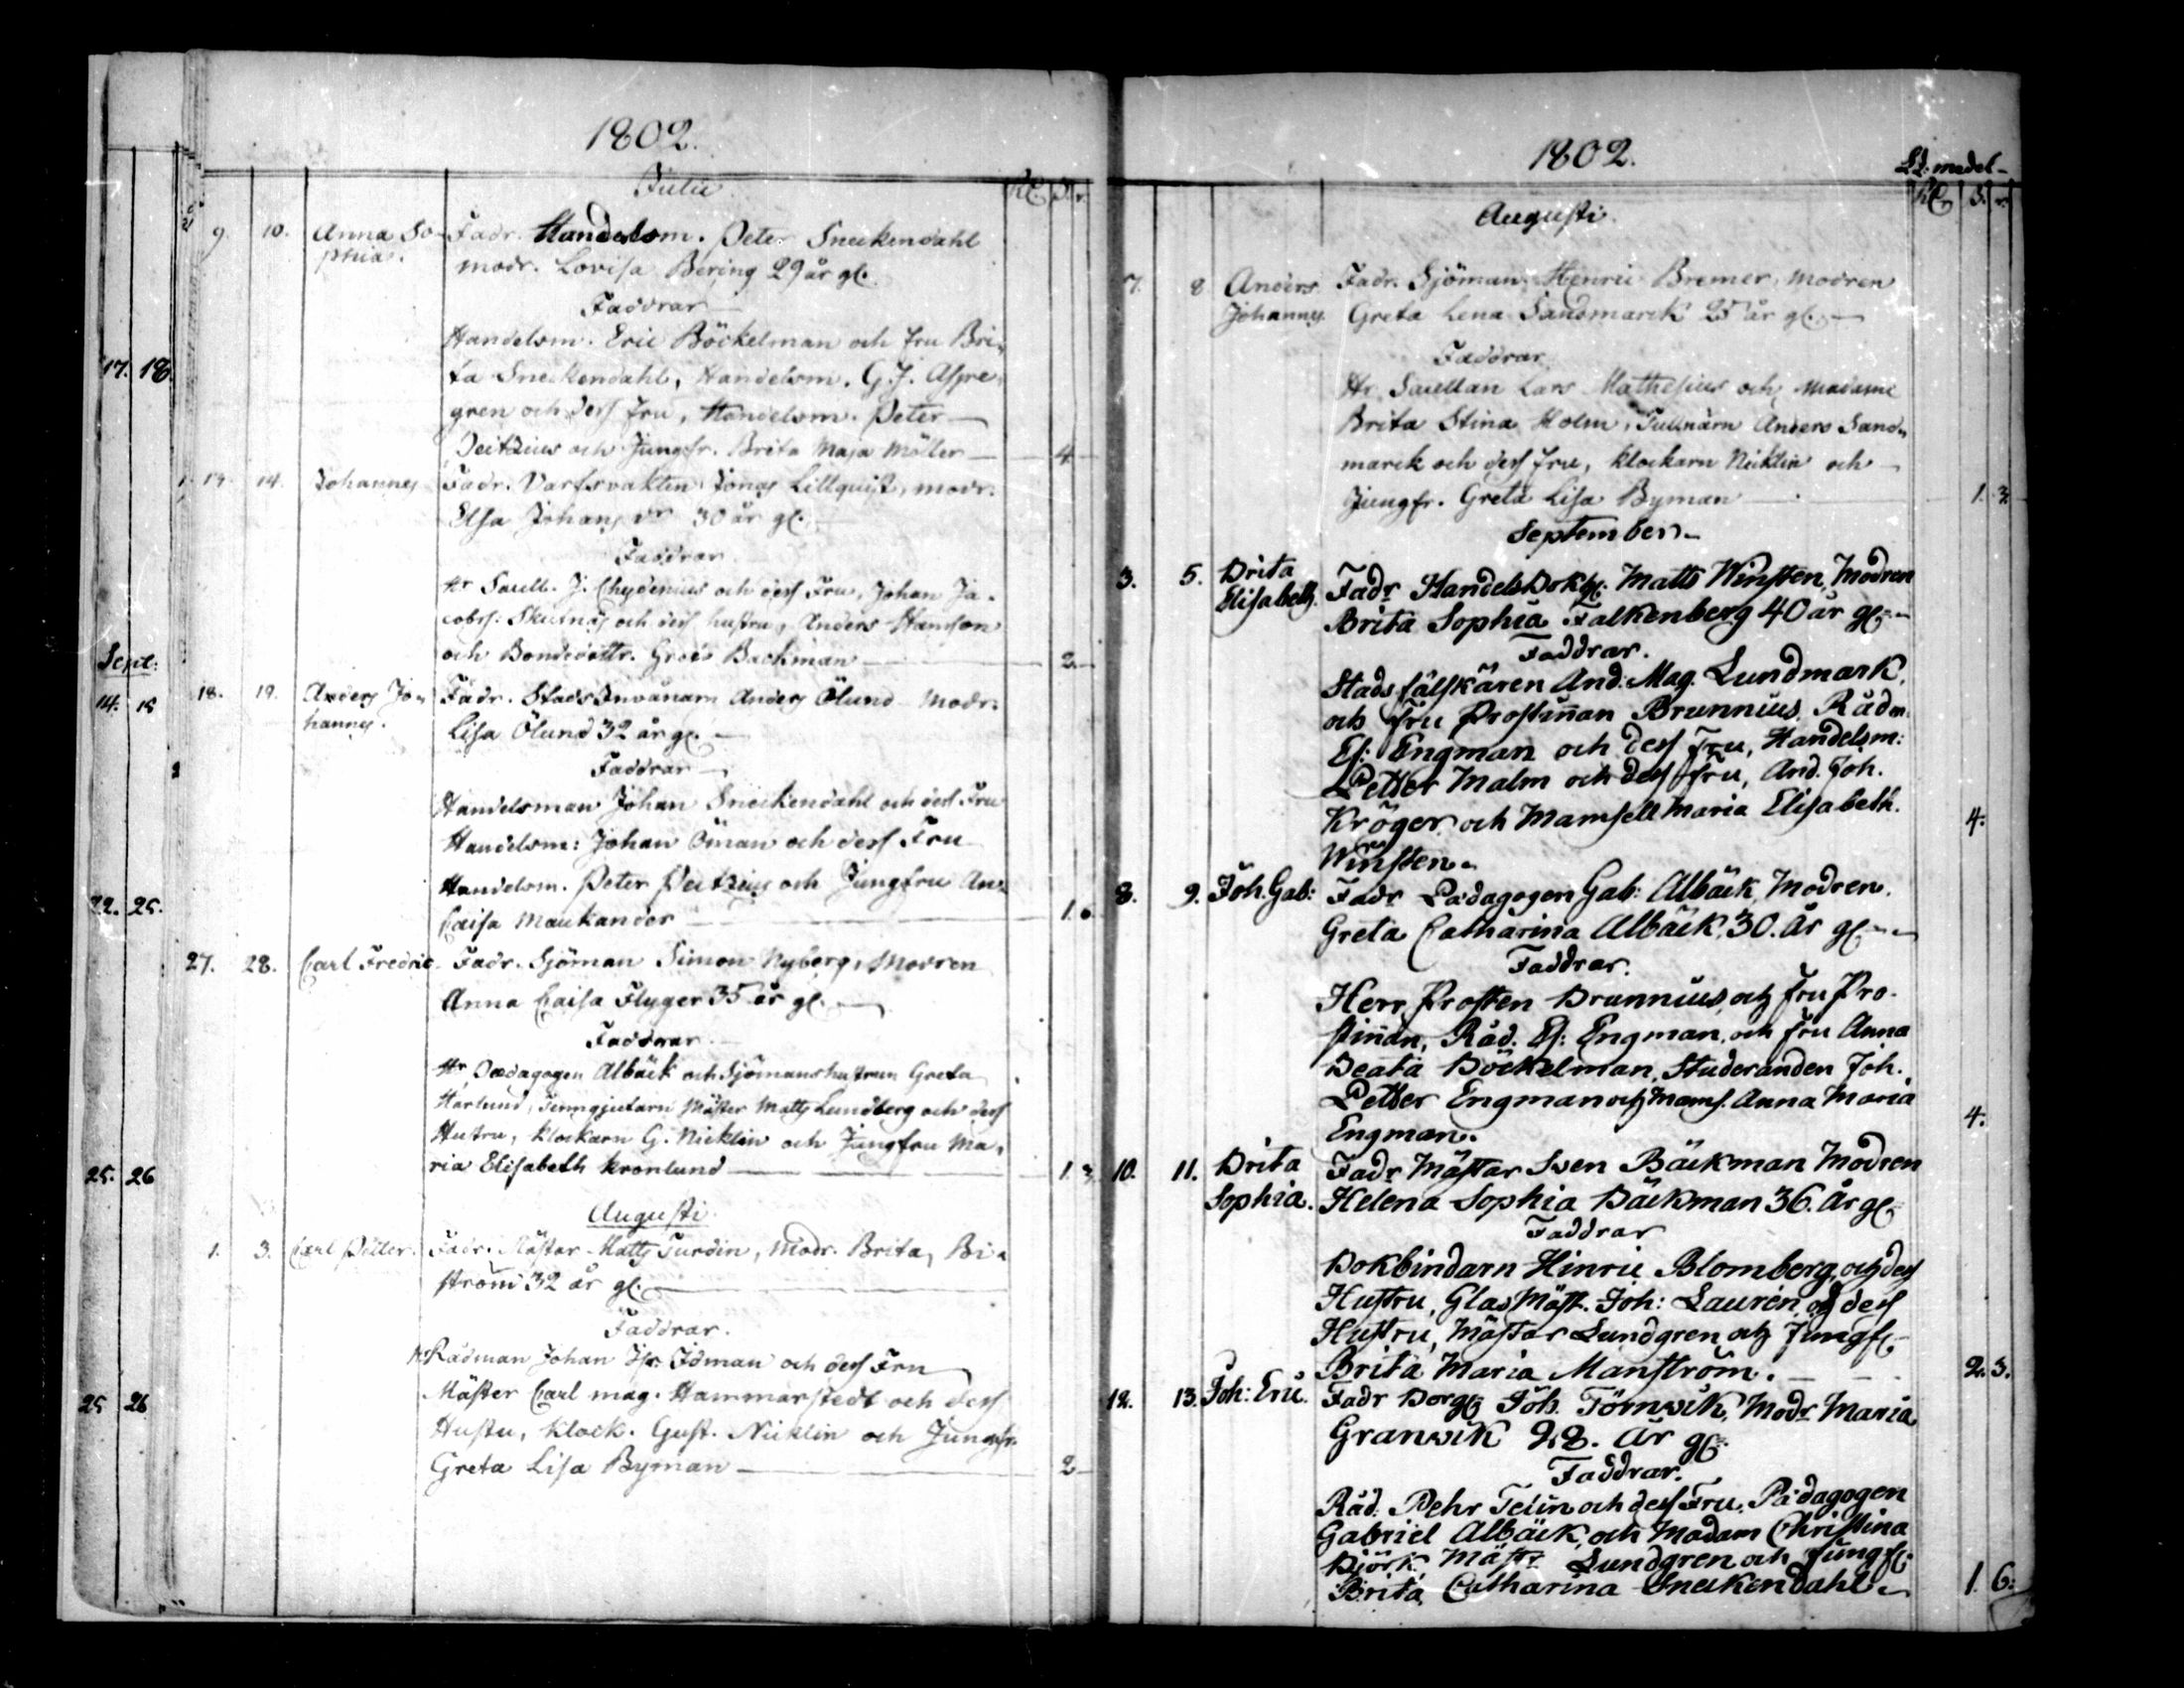 17. 18.
Sept:
14. 15
22. 25.
25. 26
25 26
1802.
Julii
9. 10. Anna So- Fadr. Handelsm. Peter Sneckendahl
phia. modr. Lovisa Bering 29 år gl.
Faddrar
Handelsm. Eric Böckelman och fru Bri-
ta Sneckendahl, Handelsm. G. J. Aspe-
gren och dess fru, Handelsm. Peter
Peitzius och Jungfr. Brita Maja Möller 4
13. 14. Johannes Fadr. Varfsvakten Jonas Lillquist, modr.
Elsa Johans dr 30 år gl.
Faddrar
Hr Saell. J. Chydenius och dess Fru, Johan Ja-
cobss: Skutnäs och dess hustru, Anders Hansson
och Bondedottr. Backman 2
18. 19. Anders Jo- Fadr. Stads Invånarn Anders Ölund Modr.
hannes. Lisa Ölund 32 år gl.
Faddrar
Handelsman Johan Sneckendahl och dess Fru
Handelsm: Johan Öman och dess Fru
Handelsm. Peter Peitzius och Jungfru An-
Caisa Maukander 1.
27. 28. Carl Fredric Fadr. Sjöman Simon Nyberg, Modren
Anna Caisa Flyger 35 år gl.
Faddrar
Hr Pædagogen Albäck och Sjömanshustrun Greta
Harlund, Tenngjutarn Mäster Matts Lundberg och dess
Hustru, klockarn G. Nicklin och Jungfru Ma-
ria Elisabeth kronlund 1. 3.
Augusti
1. 3. Carl Petter. Fadr. Mästar Matts Turdin, Modr. Brita, Bi-
ström 32 år gl.
Faddrar.
Rådman Johan Idman och dess Fru
Mäster Carl Mag. Hammarstedt och dess
Hustu, Klock. Gust. Nicklin och Jungfr.
Greta Lisa Byman 2
1802.
medel
Augusti.
7. 8 Anders Fadr. Sjöman Henric Bremer, Modren
Johannes. Greta Lena Sandmarck 25 år gl.
Faddrar
Hr Saellan Lars Mathesius och Madame
Brita Stina Holm, Tullnärn Anders Sand-
marck och dess fru, klockarn Nicklin och
Jungfr. Greta Lisa Byman 1. 3.
September
3. 5. Brita Fadr HandelsBokh: Matts Winsten, Modren
Elisabeth. Brita Sophia Falkenberg 40 år gl.
Faddrar.
Stads fältskären And. Mag. Lundmark,
och Fru Prostinnan Brunnius, Rådm:
Es: Engman och dess Fru, Handelsm:
Petter Malm och dess Fru, And. Joh.
Kröger och Mamsell Maria Elisabeth. 4.
Winsten.
8. 9. Joh. Gab: Fadr Pädagogen Gab: Albäck, Modren.
Greta Catharina Albäck, 30. år gl.
Faddrar.
Herr Prosten Brunnius, och fru Pro-
stinnan, Råd. Es: Engman, och fru Anna
Beata Böckelman, Studeranden Joh.
Petter Engman och Mams. Anna Maria 4.
Engman.
10. 11. Brita Fadr Mästar Sven Bäckman Modren
Sophia. Helena Sophia Bäckman 36. år gl
Faddrar
Bokbindarn Hinric Blomberg, och dess
Hustru, Glas Mäst. Joh: Laurén och dess
Hustru, Mästar Lundgren och Jungf:
Brita Maria Manström. 2. 3.
12. 13. Joh: Eric. Fadr Borg: Joh. Törnwik, Modr Maria
Granwik 28. år gl.
Faddrar.
Råd: Pehr Telin och dess Fru. Pädagogen
Gabriel Albäck, och Madam Christina
Björk, Mästr Lundgren och Jungf:
Brita Catharina Sneckendahl. 1. 6.